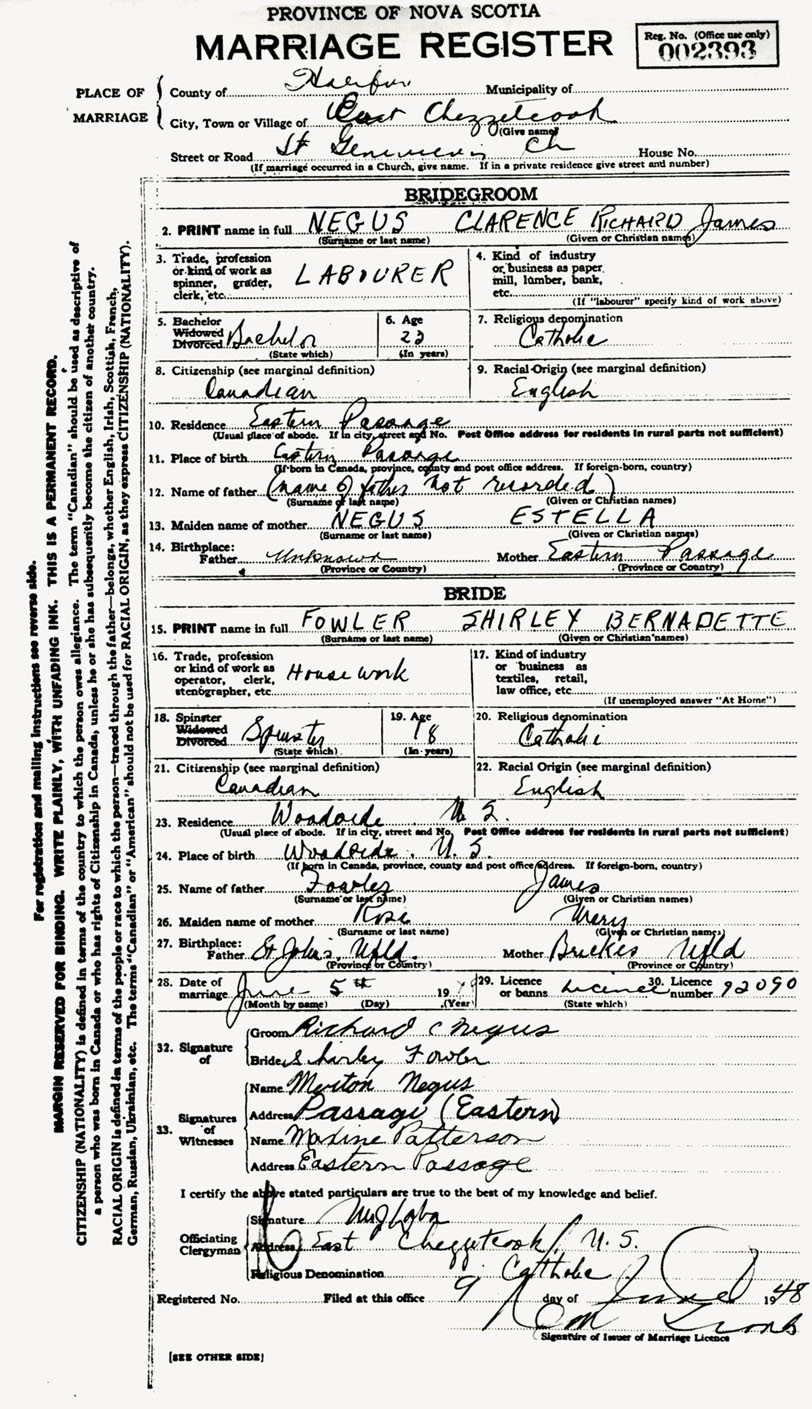 PROVINCE OF NOVA SCOTIA
MARRIAGE REGISTER
Reg. No. (Office use only)
002393
PLACE OF MARRIAGE
County of Halifax Municipality of
City, Town or Village of East Chezzetcook
(Give name)
Street or Road St Genevieves Ch House No.
(If marriage occurred in a Church, give name. If in a private residence give street and number)
BRIDEGROOM
2. PRINT name in full NEGUS CLARENCE RICHARD James
(Surname or last name) (Given or Christian names)
3. Trade, profession or kind of work as spinner, grader, clerk, etc. LABOURER
4. Kind of industry or business as paper mill, lumber, bank, etc.
(If "labourer" specify kind of work above)
5. Bachelor Widowed Divorced Bachelor
(State which)
6. Age 22
(In years)
7. Religious denomination
Catholic
8. Citizenship (see marginal definition)
Canadian
9. Racial Origin (see marginal definition)
English
10. Residence Eastern Passage
(Usual place of abode. If in city, street and No. Post Office address for residents in rural parts not sufficient)
11. Place of birth Eastern Passage
(If born in Canada, province, county and post office address. If foreign-born, country)
12. Name of father (name of father not recorded)
(Surname or last name) (Given or Christian names)
13. Maiden name of mother NEGUS ESTELLA
(Surname or last name) (Given or Christian names)
14. Birthplace: Father Unknown Mother Eastern Passage
(Province or Country) (Province or Country)
BRIDE
15. PRINT name in full FOWLER SHIRLEY BERNADETTE
(Surname or last name) (Given or Christian names)
16. Trade, profession or kind of work as operator, clerk, stenographer, etc. House work
17. Kind of industry or business as textiles, retail, law office, etc.
(If unemployed answer "At Home")
18. Spinster Widowed Divorced Spinster
(State which)
19. Age 18
(In years)
20. Religious denomination
Catholic
21. Citizenship (see marginal definition)
Canadian
22. Racial Origin (see marginal definition)
English
23. Residence Woodside N.S.
(Usual place of abode. If in city, street and No. Post Office address for residents in rural parts not sufficient)
24. Place of birth Woodside. N.S.
(If born in Canada, province, county and post office address. If foreign-born, country)
25. Name of father Fowler James
(Surname or last name) (Given or Christian names)
26. Maiden name of mother Rose Mary
(Surname or last name) (Given or Christian names)
27. Birthplace: Father St John's. Nfld Mother Nfld
(Province or Country) (Province or Country)
28. Date of marriage June 5th 19
(Month by name) (Day) (Year)
29. Licence or banns Licence
(State which)
30. Licence number 92090
32. Signature of
Groom Richard C Negus
Bride Shirley Fowler
33. Signatures of Witnesses
Name Merton Negus
Address Passage (Eastern)
Name Maxine Patterson
Address Eastern Passage
I certify the above stated particulars are true to the best of my knowledge and belief.
Officiating Clergyman
Signature
Address East Chezzetcook, N.S.
Religious Denomination Catholic
Registered No. Filed at this office 9 day of June 1948
Signature of Issuer of Marriage Licence
[SEE OTHER SIDE]
For registration and mailing instructions see reverse side.
MARGIN RESERVED FOR BINDING. WRITE PLAINLY, WITH UNFADING INK. THIS IS A PERMANENT RECORD.
CITIZENSHIP (NATIONALITY) is defined in terms of the country to which the person owes allegiance. The term "Canadian" should be used as descriptive of
a person who was born in Canada or who has rights of Citizenship in Canada, unless he or she has subsequently become the citizen of another country.
RACIAL ORIGIN is defined in terms of the people or race to which the person—traced through the father—belongs, whether English, Irish, Scottish, French,
German, Russian, Ukrainian, etc. The terms "Canadian" or "American" should not be used for RACIAL ORIGIN, as they express CITIZENSHIP (NATIONALITY).